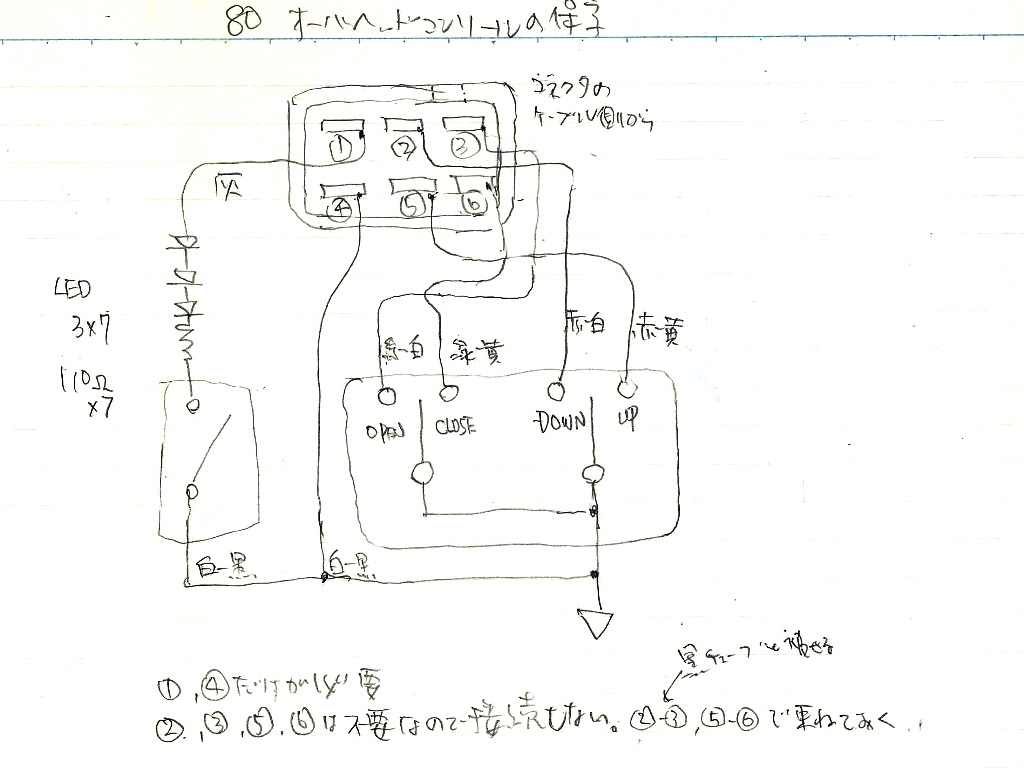 80 オーバーヘッドコンソールの様子
コネクタの
ケーブル側から
① ② ③
④ ⑤ ⑥
灰
LED
3×7
110Ω
×7
緑-白 緑-黄 赤-白 赤-黄
OPEN CLOSE DOWN UP
白-黒 白-黒
黒チューブを被せる
①,④だけが必要
②,③,⑤,⑥は不要なので接続しない。②-③,⑤-⑥で束ねておく.